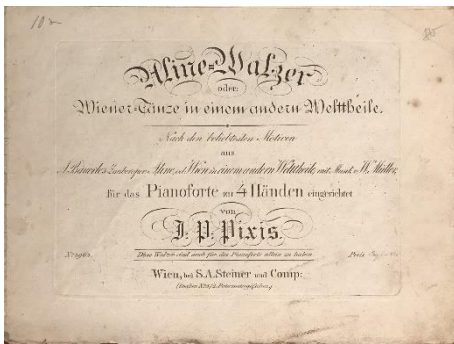 Aline-Walzer
oder
Wiener-Tänze in einem andern Welttheile.
Nach den beliebtesten Motiven
aus
A. Bäuerles Zauberoper: Aline, od. Wien in einem andern Welttheile, mit Musik v. W. Müller,
für das Pianoforte zu 4 Händen eingerichtet
von
J. P. Pixis.
Diese Walzer sind auch für das Pianoforte allein zu haben
Wien, bei S. A. Steiner und Comp: